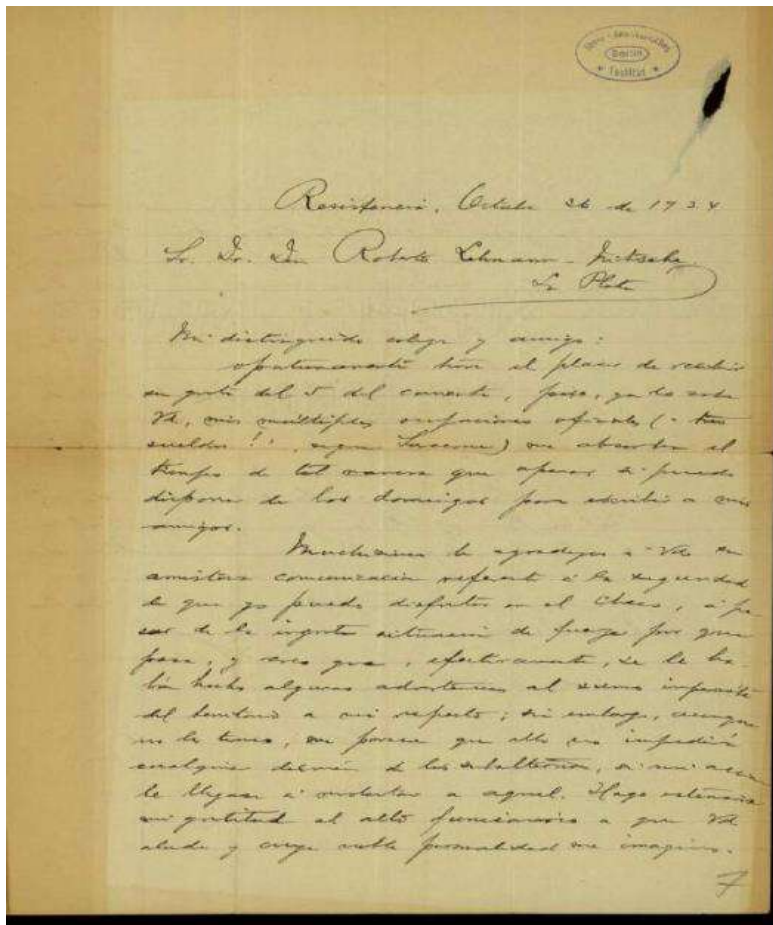 Ibero-Amerikanisches
Berlin
* Institut *
Resistencia, Octubre 26 de 1924
Sr. Dr. Don Roberto Lehmann-Nitsche.
La Plata
Mi distinguido colega y amigo:
oportunamente tuve el placer de recibir
su grata del 5 del corriente, pero, ya lo sabe
Vd, mis múltiples ocupaciones oficiales (- tres
sueldos!!, según) me absorben el
tiempo de tal manera que apenas si puedo
disponer de los domingos para escribir a mis
amigos.
Muchísimo le agradezco a Vd su
amistosa comunicación referente á la seguridad
de que yo puedo disfrutar en el Chaco, á pe-
sar de la ingrata situación de fuerza por que
pasa, y creo que, efectivamente, se le ha-
bía hecho algunas advertencias al
del territorio a mi respecto; sin embargo, aunque
no lo temo, me parece que ello no impediría
cualquier desmán de los subalternos, si mi
le llegase á molestar a aquel. Hago extensiva
mi gratitud al alto funcionario a que Vd
alude y cuya noble personalidad me imagino.
7